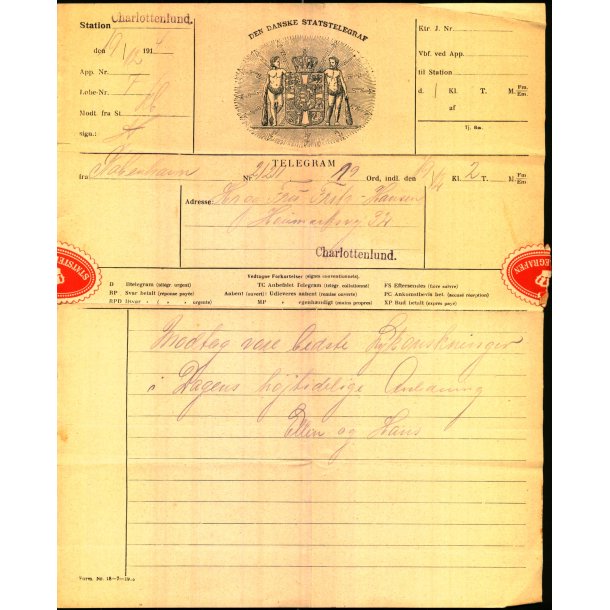 Station Charlottenlund.
DEN DANSKE STATSTELEGRAF
den 9/12 191
App. Nr.
Løbe-Nr.
Modt. fra St.
sign.:
Ktr J. Nr.
Vbf. ved App.
til Station
d. / Kl. T. M. Fm Em.
af
Tj. Bm.
TELEGRAM
fra København Nr. Ord, indl. den Kl. 2 T. M. Fm Em.
Adresse: Fritz-Hansen
Charlottenlund.
Vedtagne Forkortelser (signes conventionnels).
D Iltelegram (télégr. urgent) TC Anbefalet Telegram (télégr. collationné) FS Eftersendes (faire suivre)
RP Svar betalt (réponse payée) Aabent (ouvert): Udleveres aabent (remise ouverte) PC Ankomstbevis bet. (accusé réception)
RPD Ilsvar - ( - - urgente) MP - egenhændigt (mains propres) XP Bud betalt (exprès payé)
STATSTELE
TELEGRAFEN
Modtag vore bedste Lykønskninger
i Dagens højtidelige Anledning
Ellen og Hans
Form. Nr. 18-7-19